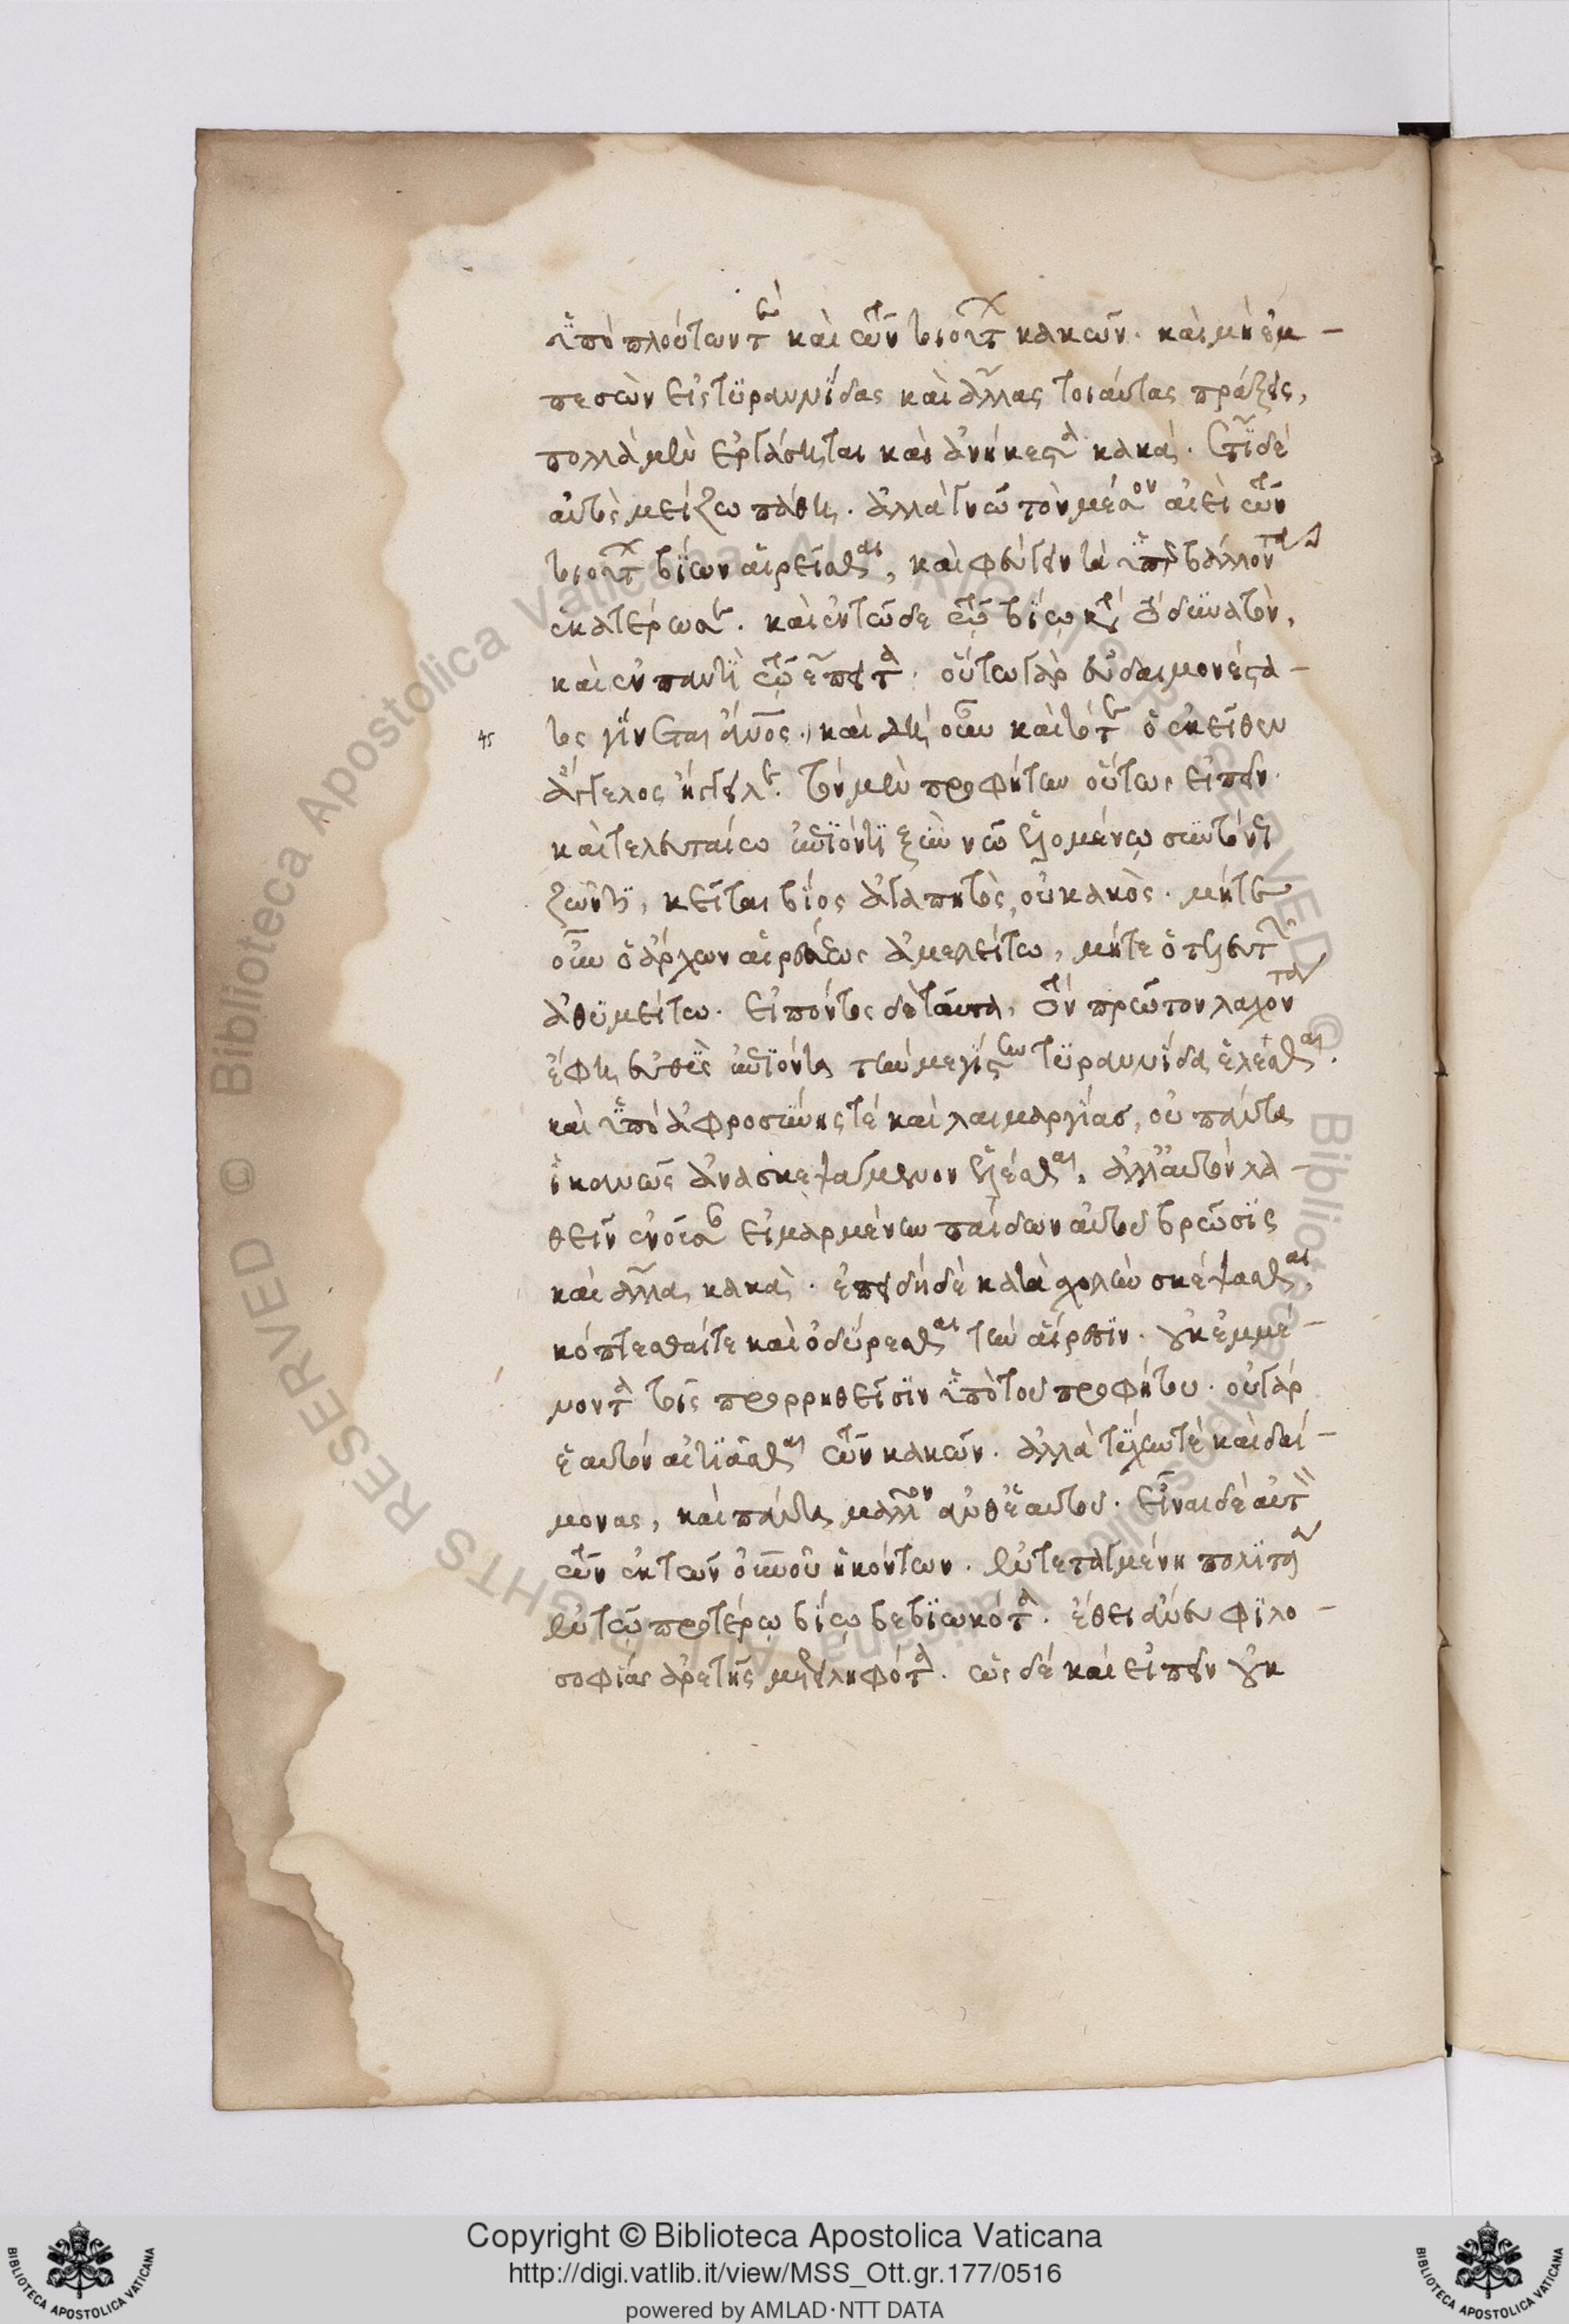 ὑπὸ πλούτων τε καὶ τῶν τοιούτων κακῶν. καὶ μὴ ἐμ-
πεσὼν εἰς τυραννίδας καὶ ἄλλας τοιαύτας πράξεις,
πολλὰ μὲν ἐργάσηται καὶ ἀνήκεστα κακά. ἔτι δὲ
αὐτὸς μείζω πάθῃ. ἀλλὰ γνῷ τὸν μέσον αἰεὶ τῶν
τοιούτων βίων αἱρεῖσθαι, καὶ φεύγειν τὰ ὑπερβάλλοντα
ἑκατέρωσε. καὶ ἐν τῷδε τῷ βίῳ κατὰ τὸ δυνατὸν,
καὶ ἐν παντὶ τῷ ἔπειτα. οὕτω γὰρ εὐδαιμονέστα-
τος γίνεται ἄνθρωπος. καὶ δὴ οὖν καὶ τότε ὁ ἐκεῖθεν
ἄγγελος ἤγγειλε. τὸν μὲν προφήτην οὕτως εἰπεῖν.
καὶ τελευταίῳ ἐπιόντι ξὺν νῷ ἑλομένῳ συντόνως
ζῶντι, κεῖται βίος ἀγαπητὸς, οὐ κακὸς. μήτε
οὖν ὁ ἄρχων αἱρέσεως ἀμελείτω, μήτε ὁ τελευτῶν
ἀθυμείτω. εἰπόντος δὲ ταῦτα, τὸν πρῶτον λαχόντα
ἔφη εὐθὺς ἐπιόντα τὴν μεγίστην τυραννίδα ἑλέσθαι.
καὶ ὑπὸ ἀφροσύνης τὲ καὶ λαιμαργίας, οὐ πάντα
ἱκανῶς ἀνασκεψάμενον ἑλέσθαι, ἀλλ' αὐτὸν λα-
θεῖν ἐνοῦσαν εἱμαρμένην παίδων αὐτοῦ βρώσις
καὶ ἄλλα κακὰ. ἐπειδὴ δὲ κατὰ σχολὴν σκέψασθαι,
κόπτεσθαί τε καὶ ὀδύρεσθαι τὴν αἵρεσιν. οὐκ ἐμμέ-
νοντα τοῖς προρρηθεῖσιν ὑπὸ τοῦ προφήτου. οὐ γὰρ
ἑαυτὸν αἰτιᾶσθαι τῶν κακῶν. ἀλλὰ τύχην τὲ καὶ δαί-
μονας, καὶ πάντα μᾶλλον ἀνθ' ἑαυτοῦ. εἶναι δὲ αὐτὸν
τῶν ἐκ τῶν οὐρανοῦ ἡκόντων. ἐν τεταγμένῃ πολιτείᾳ
ἐν τῷ προτέρῳ βίῳ βεβιωκότα. ἔθει ἄνευ φιλο-
σοφίας ἀρετῆς μετειληφότα. ὡς δὲ καὶ εἰπεῖν οὐκ
Copyright © Biblioteca Apostolica Vaticana
http://digi.vatlib.it/view/MSS_Ott.gr.177/0516
powered by AMLAD·NTT DATA